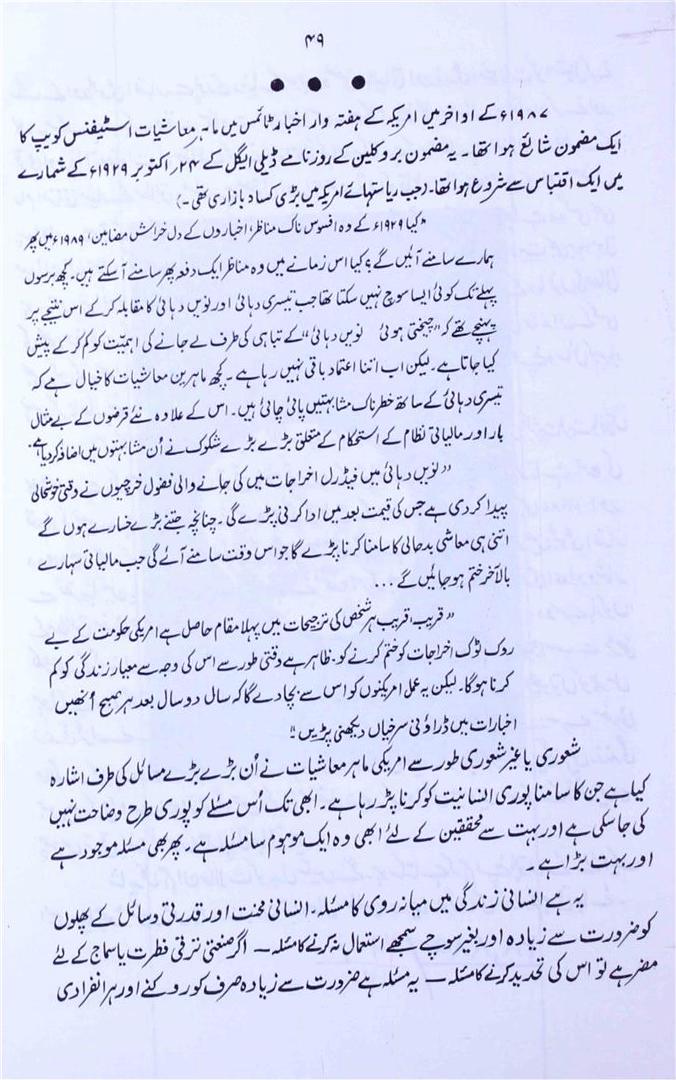 ۴۹
● ● ●
۱۹۸۷ء کے اواخر میں امریکہ کے ہفتہ وار اخبار ٹائمس میں ماہر معاشیات اسٹیفنس کویپ کا
ایک مضمون شائع ہوا تھا۔ یہ مضمون بروکلین کے روزنامے ڈیلی ایگل کے ۲۴؍ اکتوبر ۱۹۲۹ء کے شمارے
میں ایک اقتباس سے شروع ہوا تھا۔ (جب ریاستہائے امریکہ میں بڑی کساد بازاری تھی۔)
”کیا ۱۹۲۹ء کے وہ افسوس ناک مناظر، اخباروں کے دل خراش مضامین، ۱۹۸۹ء میں پھر
ہمارے سامنے آئیں گے؟ کیا اس زمانے میں وہ مناظر ایک دفعہ پھر سامنے آ سکتے ہیں۔ کچھ برسوں
پہلے تک کوئی ایسا سوچ نہیں سکتا تھا جب تیسری دہائی اور نویں دہائی کا مقابلہ کر کے اس نتیجے پر
پہنچے تھے کہ ”چیختی ہوئی نویں دہائی“ کے تباہی کی طرف لے جانے کی اہمیت کو کم کر کے پیش
کیا جاتا ہے۔ لیکن اب اتنا اعتماد باقی نہیں رہا ہے۔ کچھ ماہرین معاشیات کا خیال ہے کہ
تیسری دہائی کے ساتھ خطرناک مشابہتیں پائی جاتی ہیں۔ اس کے علاوہ نئے قرضوں کے بے مثال
بار اور مالیاتی نظام کے استحکام کے متعلق بڑے بڑے شکوک نے اُن مشابہتوں میں اضافہ کر دیا ہے۔
”نویں دہائی میں فیڈرل اخراجات میں کی جانے والی فضول خرچیوں نے وقتی خوشحالی
پیدا کر دی ہے جس کی قیمت بعد میں ادا کرنی پڑے گی۔ چنانچہ جتنے بڑے خسارے ہوں گے
اتنی ہی معاشی بدحالی کا سامنا کرنا پڑے گا جو اس وقت سامنے آئے گی جب مالیاتی سہارے
بالآخر ختم ہو جائیں گے...
”قریب قریب ہر شخص کی ترجیحات میں پہلا مقام حاصل ہے امریکی حکومت کے بے
روک ٹوک اخراجات کو ختم کرنے کو۔ ظاہر ہے وقتی طور سے اس کی وجہ سے معیار زندگی کو کم
کرنا ہو گا۔ لیکن یہ عمل امریکنوں کو اس سے بچا دے گا کہ سال دو سال بعد ہر صبح اُنھیں
اخبارات میں ڈراؤنی سرخیاں دیکھنی پڑیں“۔
شعوری یا غیر شعوری طور سے امریکی ماہر معاشیات نے اُن بڑے بڑے مسائل کی طرف اشارہ
کیا ہے جن کا سامنا پوری انسانیت کو کرنا پڑ رہا ہے۔ ابھی تک اُس مسئلے کو پوری طرح وضاحت نہیں
کی جا سکی ہے اور بہت سے محققین کے لئے ابھی وہ ایک موہوم سا مسئلہ ہے۔ پھر بھی مسئلہ موجود ہے
اور بہت بڑا ہے۔
یہ ہے انسانی زندگی میں میانہ روی کا مسئلہ۔ انسانی محنت اور قدرتی وسائل کے پھلوں
کو ضرورت سے زیادہ اور بغیر سوچے سمجھے استعمال نہ کرنے کا مسئلہ — اگر صنعتی ترقی فطرت یا سماج کے لئے
مضر ہے تو اس کی تحدید کرنے کا مسئلہ — یہ مسئلہ ہے ضرورت سے زیادہ صرف کو روکنے اور ہر انفرادی